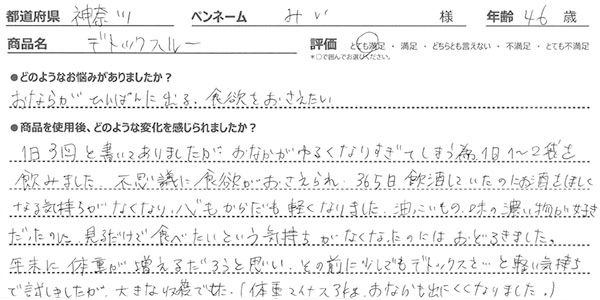 都道府県 神奈川 ペンネーム みい 様 年齢 46 歳
商品名 デトックスルー 評価 とても満足 ・ 満足 ・ どちらとも言えない ・ 不満足 ・ とても不満足
*○で囲んでお選びください。
●どのようなお悩みがありましたか？
おならがひんぱんに出る、食欲をおさえたい
●商品を使用後、どのような変化を感じられましたか？
1日3回と書いてありましたが、おなかがゆるくなりすぎてしまう為、1日1〜2袋を
飲みました。不思議に食欲がおさえられ、365日飲酒していたのにお酒をほしく
なる気持ちがなくなり、心もからだも軽くなりました。油っこいもの、味の濃い物が好き
だったのに、見るだけで食べたいという気持ちがなくなったのにはおどろきました。
年末に体重が増えるだろうと思い、その前に少しでもデトックスを…と軽い気持ち
で試しましたが、大きな収穫でした。(体重マイナス3kg、おなかも出にくくなりました。)